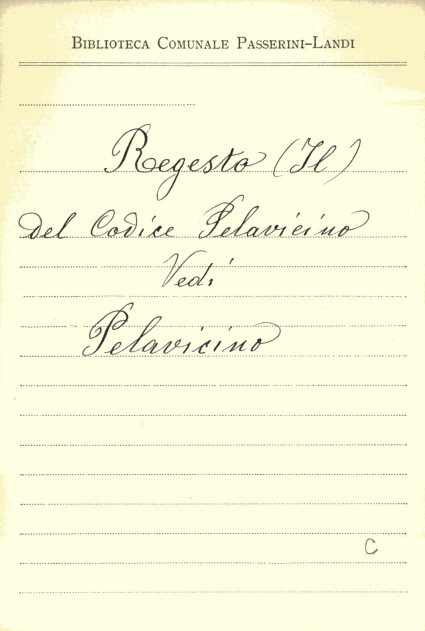 BIBLIOTECA COMUNALE PASSERINI-LANDI
Regesto (Il)
del Codice Pelavicino
Vedi
Pelavicino
C